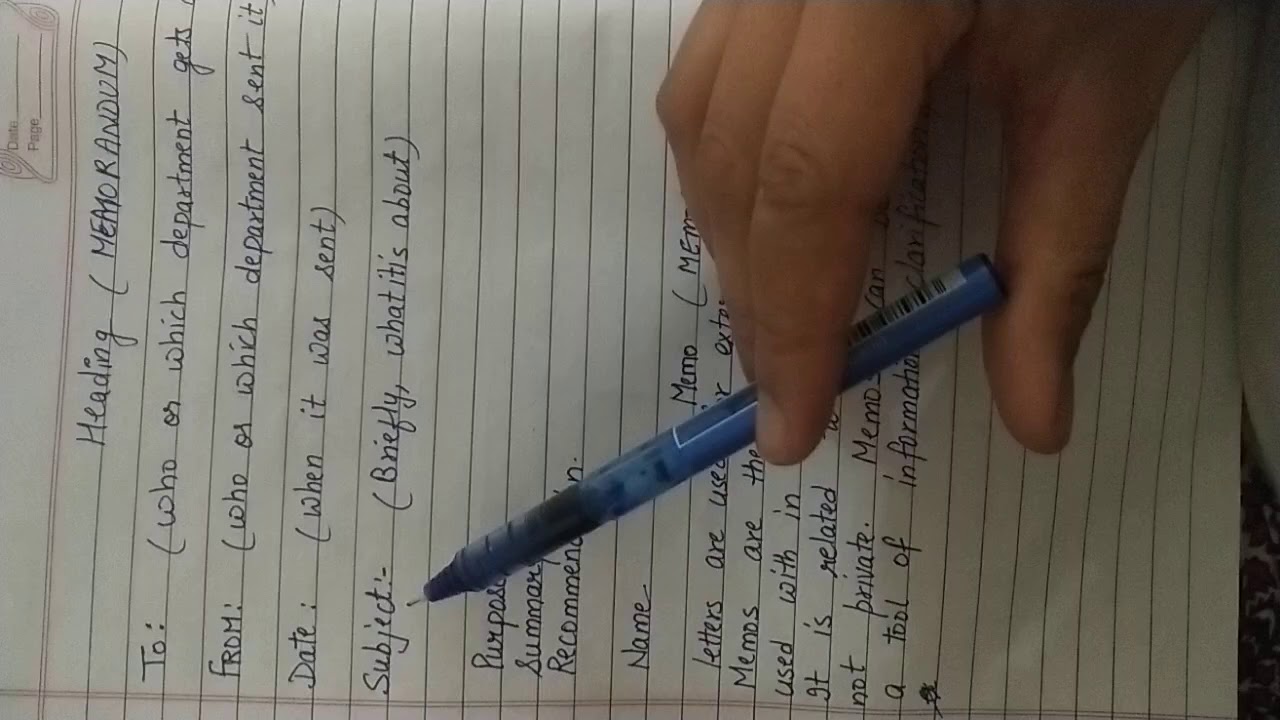 Date
Page
Heading (MEMORANDUM)
To: (who or which department gets
FROM: (who or which department sent it
Date: (when it was sent)
Subject:- (Briefly, whatitis about)
Purpose
Summary
Recommendation.
Name
Memo (MEM
letters are used
Memos are the
used with in
It is related
not private. Memo can
a tool of information clarification